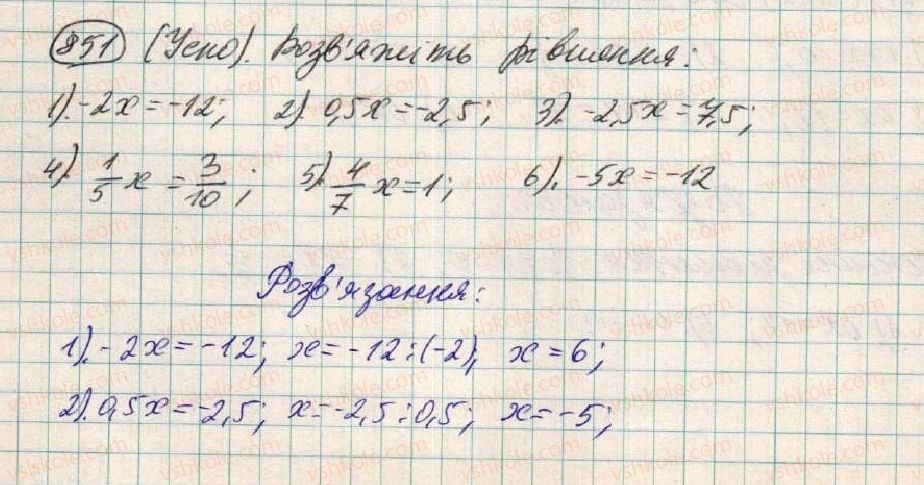 851 (Усно). Розв'яжіть рівняння:
1). -2x = -12; 2). 0,5x = -2,5; 3). -2,5x = 7,5;
4). 1/5 x = 3/10; 5). 4/7 x = 1; 6). -5x = -12
Розв'язання:
1). -2x = -12; x = -12 : (-2), x = 6;
2). 0,5x = -2,5; x = -2,5 : 0,5; x = -5;